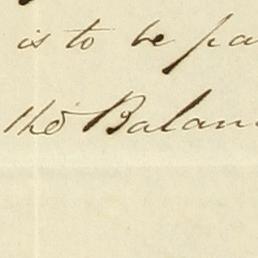 is to be pa
the Balan